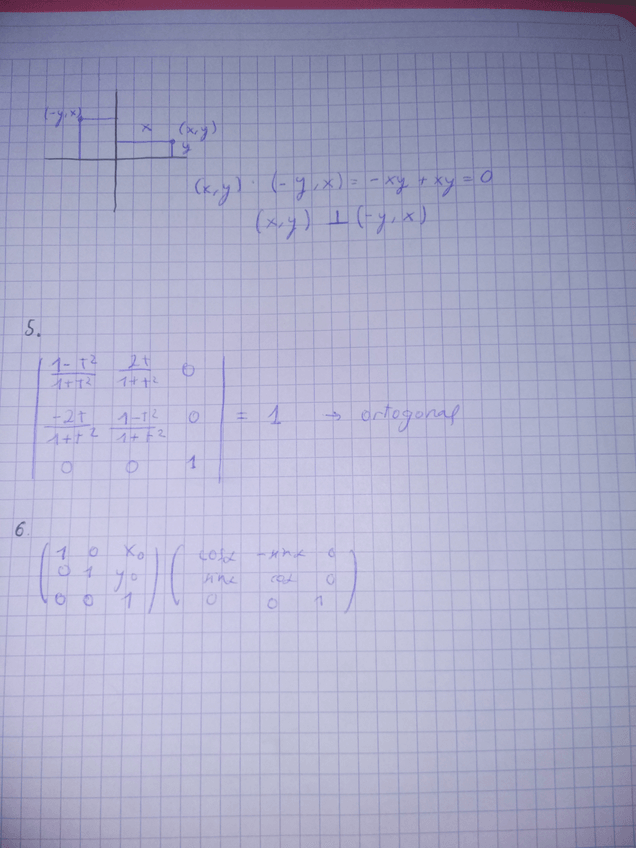 (-y, x)
x (x, y)
y
(x, y) · (-y, x) = -xy + xy = 0
(x, y) ⊥ (-y, x)
5.
| (1-t²)/(1+t²) 2t/(1+t²) 0 |
| -2t/(1+t²) (1-t²)/(1+t²) 0 | = 1 → ortogonal
| 0 0 1 |
6.
( 1 0 x₀ ) ( cosα -sinα 0 )
( 0 1 y₀ ) ( sinα cosα 0 )
( 0 0 1 ) ( 0 0 1 )